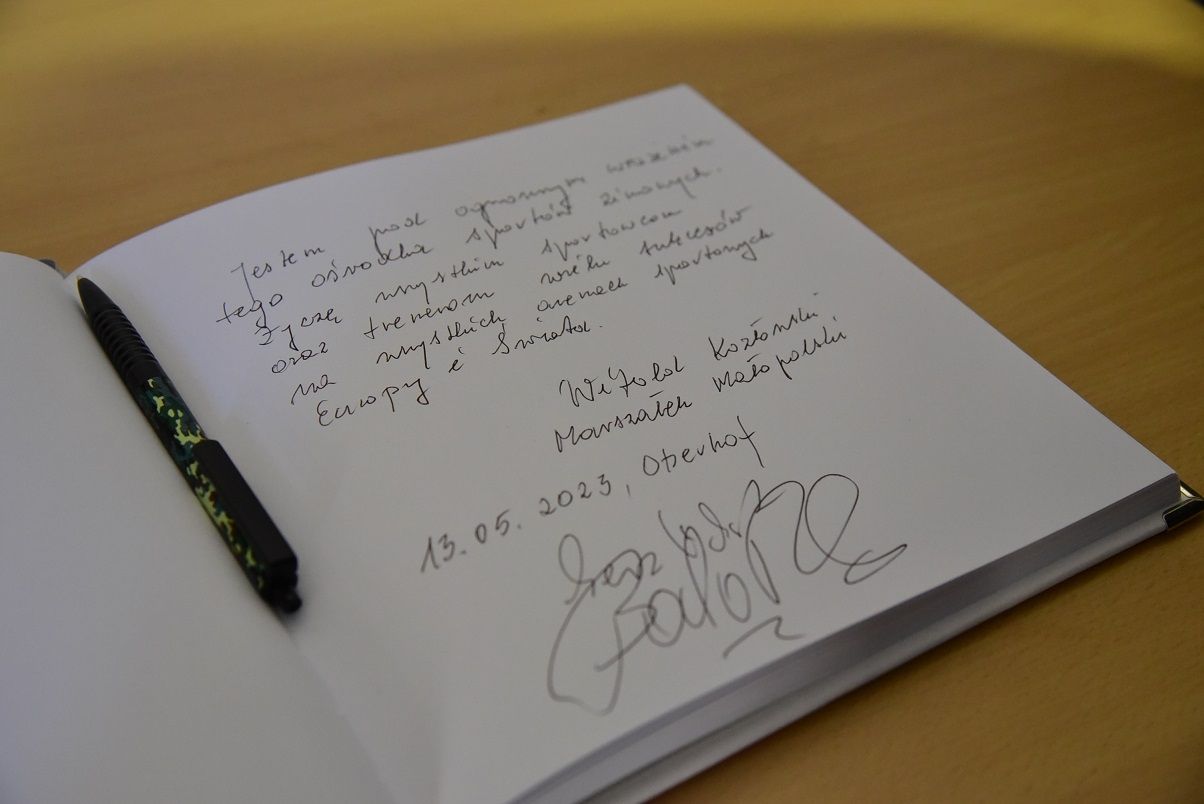 Jestem pod ogromnym wrażeniem
tego ośrodka sportów zimowych.
Życzę wszystkim sportowcom
oraz trenerom wielu sukcesów
na wszystkich arenach sportowych
Europy i Świata.
Witold Kozłowski,
Marszałek Małopolski,
13.05.2023, Oberhof